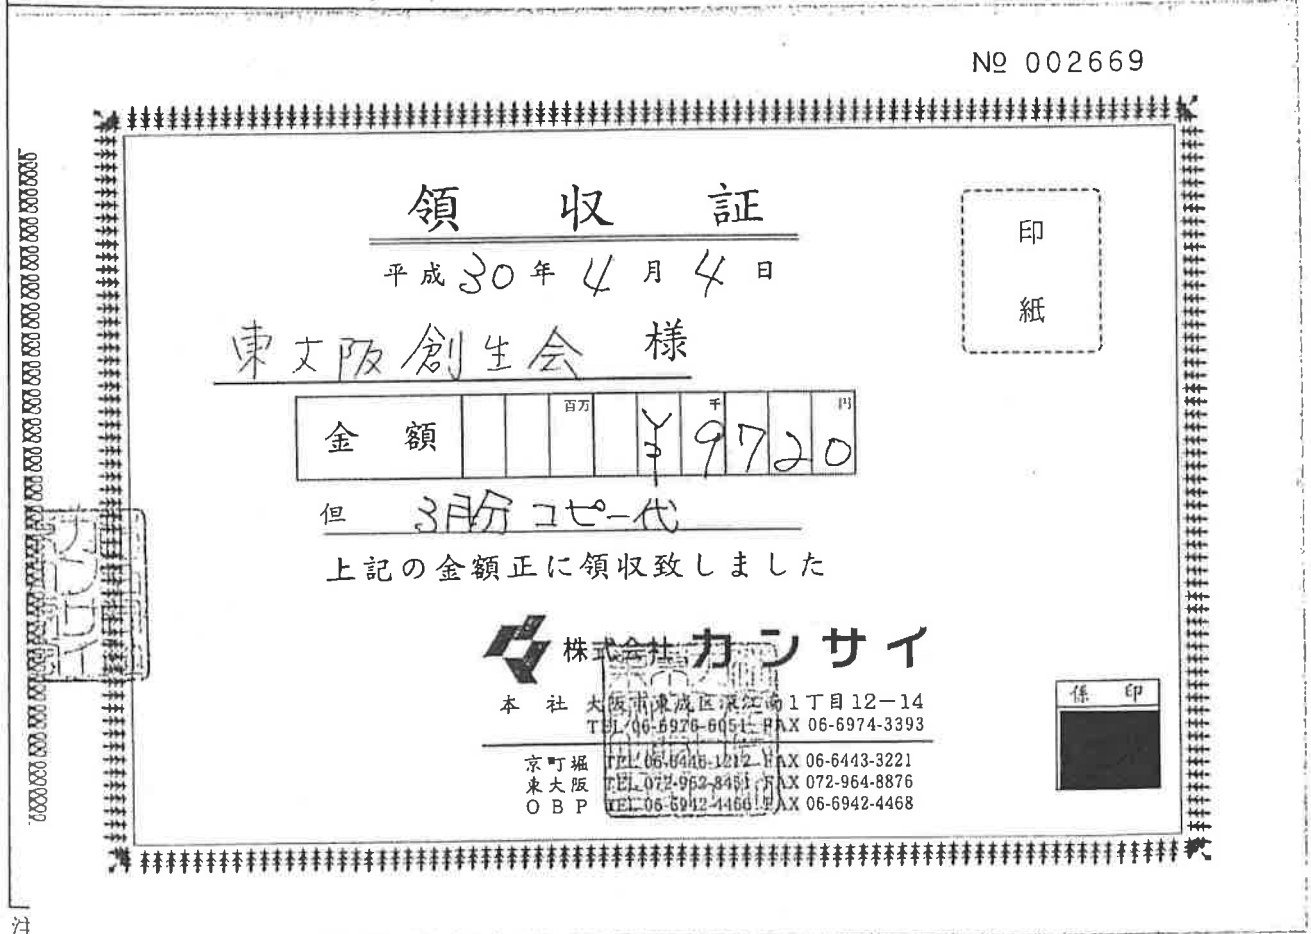 № 002669
領収証
平成30年4月4日
印紙
東大阪創生会 様
金額 百万 千 円
¥9720
但 3月分コピー代
上記の金額正に領収致しました
株式会社カンサイ
本社 大阪市東成区深江南1丁目12-14
TEL 06-6976-6051 FAX 06-6974-3393
京町堀 TEL 06-6446-1212 FAX 06-6443-3221
東大阪 TEL 072-962-8451 FAX 072-964-8876
OBP TEL 06-6942-4466 FAX 06-6942-4468
係印
注